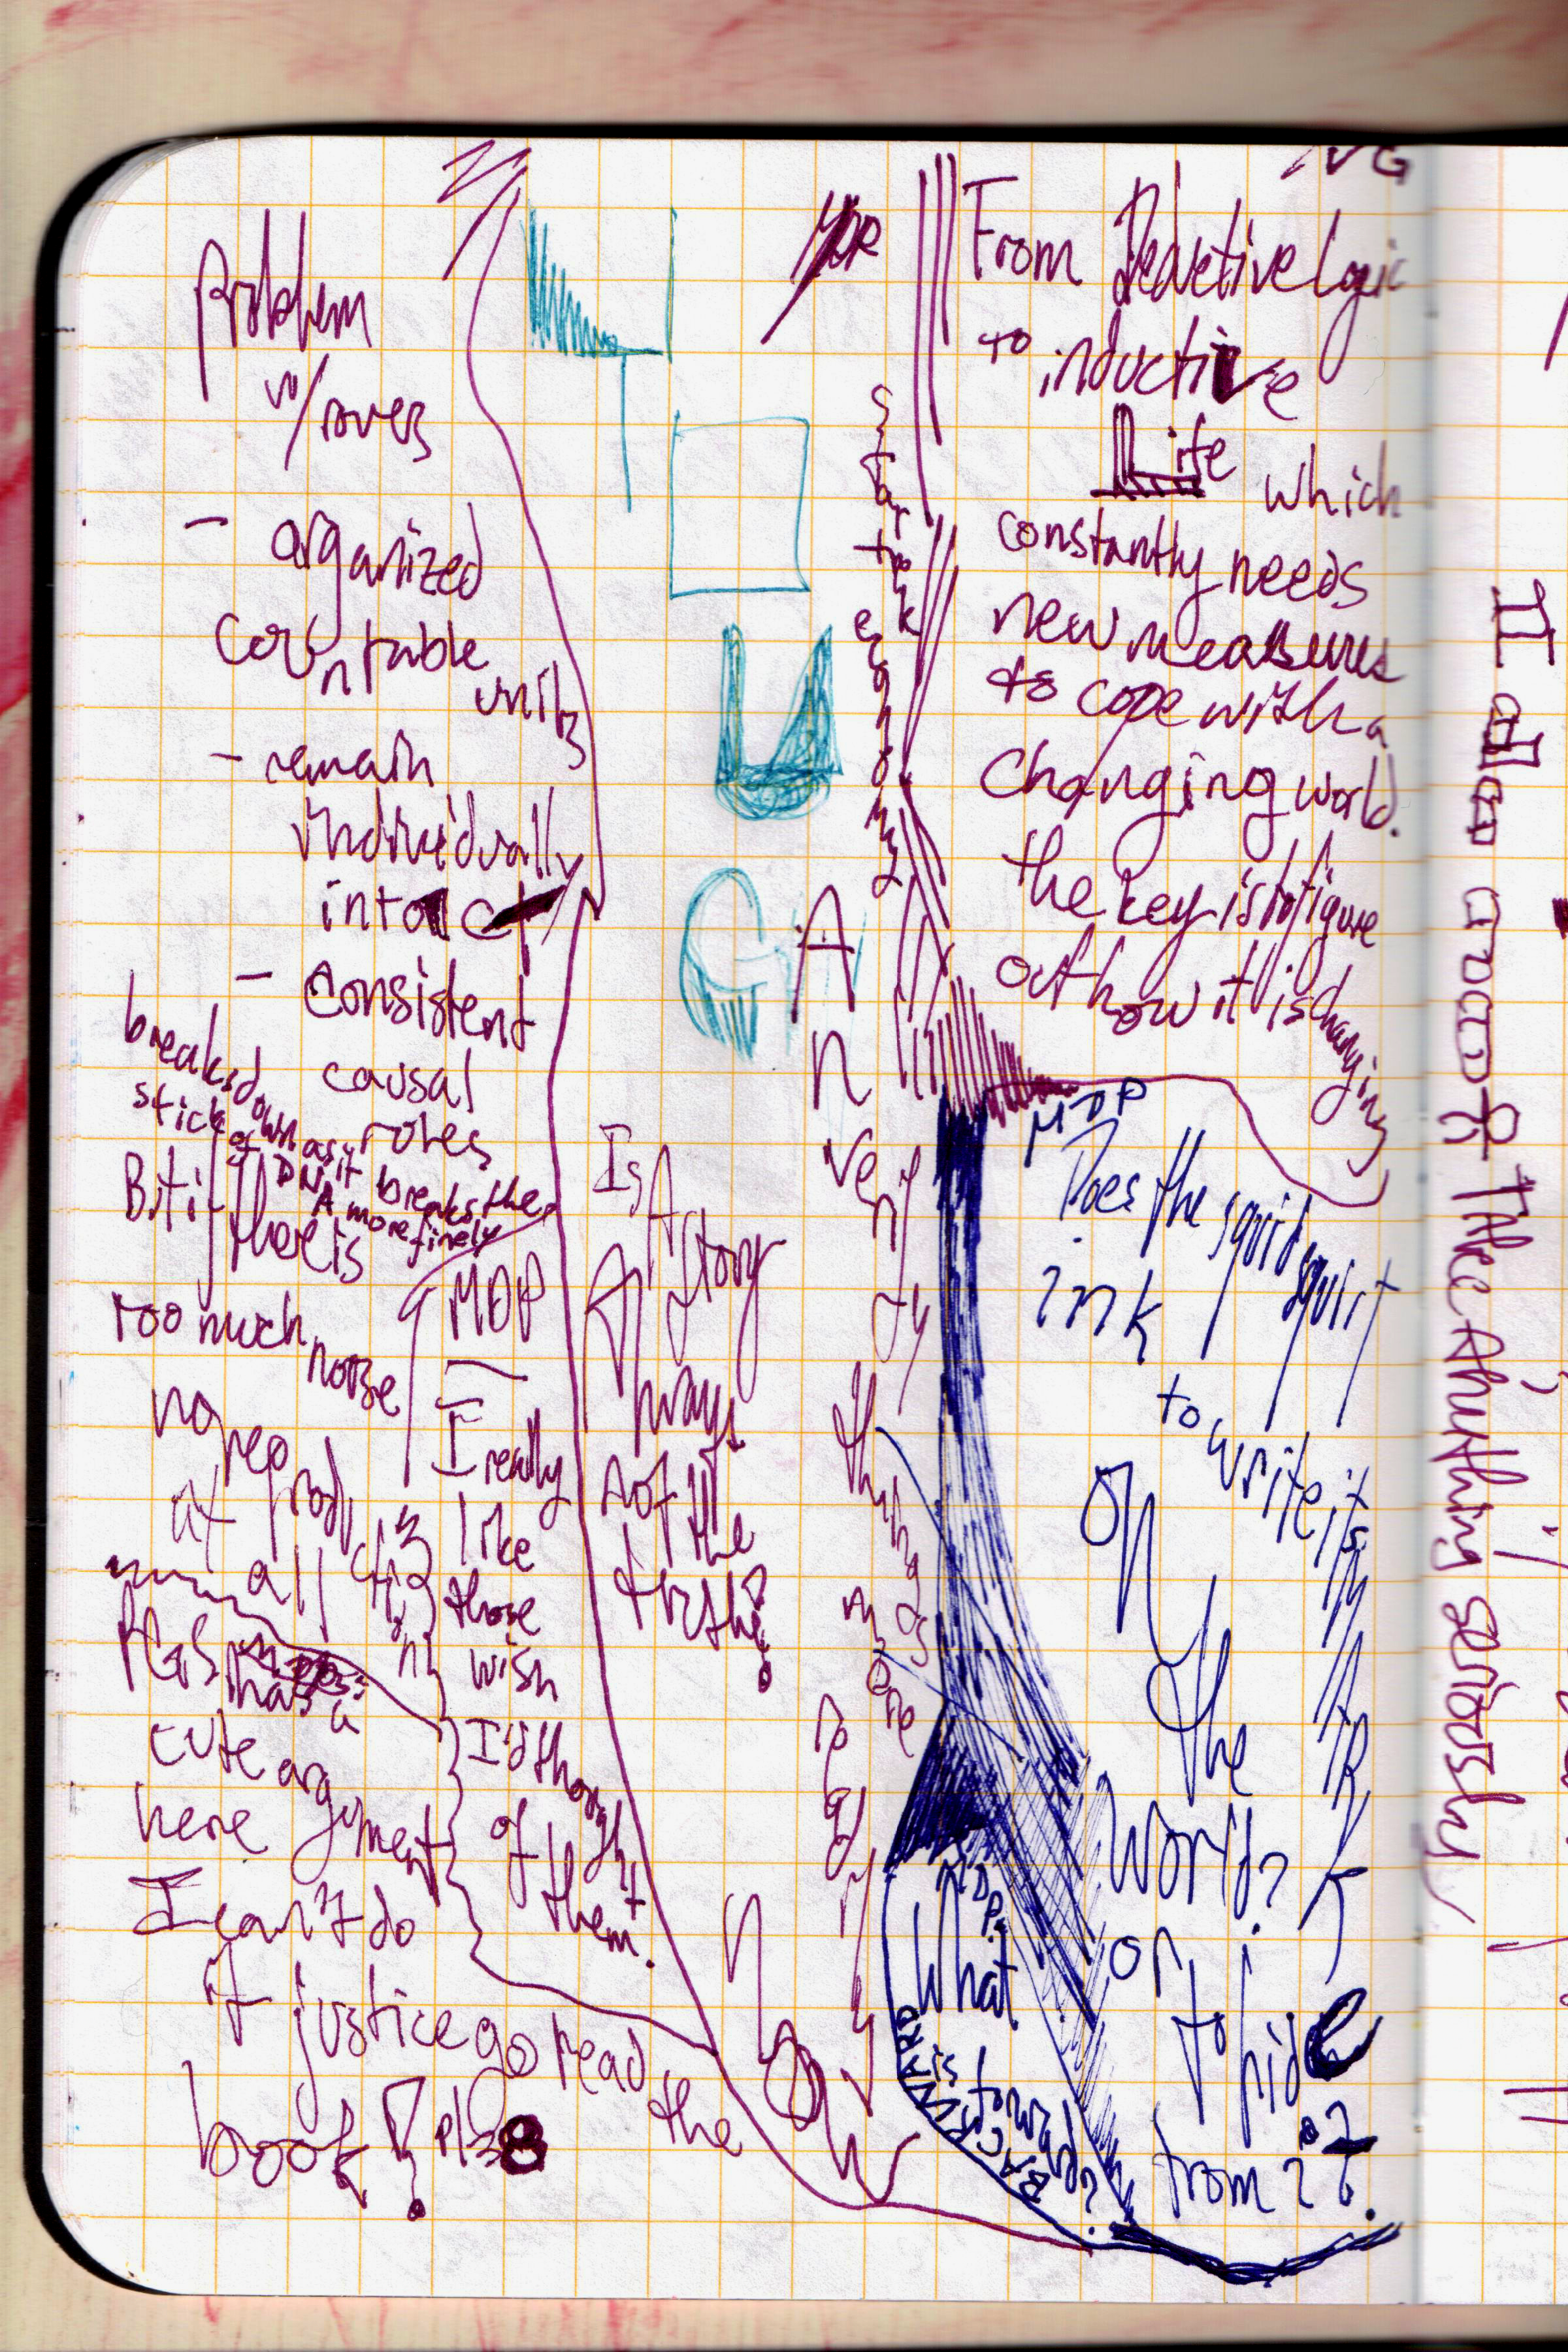 Problem
w/
- organized
countable
units
- remain
individually
intact
- consistent
causal
roles
breaks down as it breaks the
stick of DNA more finely
But if there is
too much
noise
no reproduction
at all
has a
cute argument
here
I can't do
it justice go read the
book! pls
MDP
I really
like
those
wish
I'd thought
of them.
Is A Story
Always
not the
truth?!
MDP
Star trek economy
An
Verify
things more
rapidly
Now
NG
From Deductive Logic
to inductive
Life which
constantly needs
new measures
to cope with a
changing world.
the key is to figure
out how it is changing
MDP
Does the squid squirt
ink
to write its
MARK
on
the
World?
or
to hide
from it?
MDP:
What
is
BACKWARD
I also
Take Anything seriously